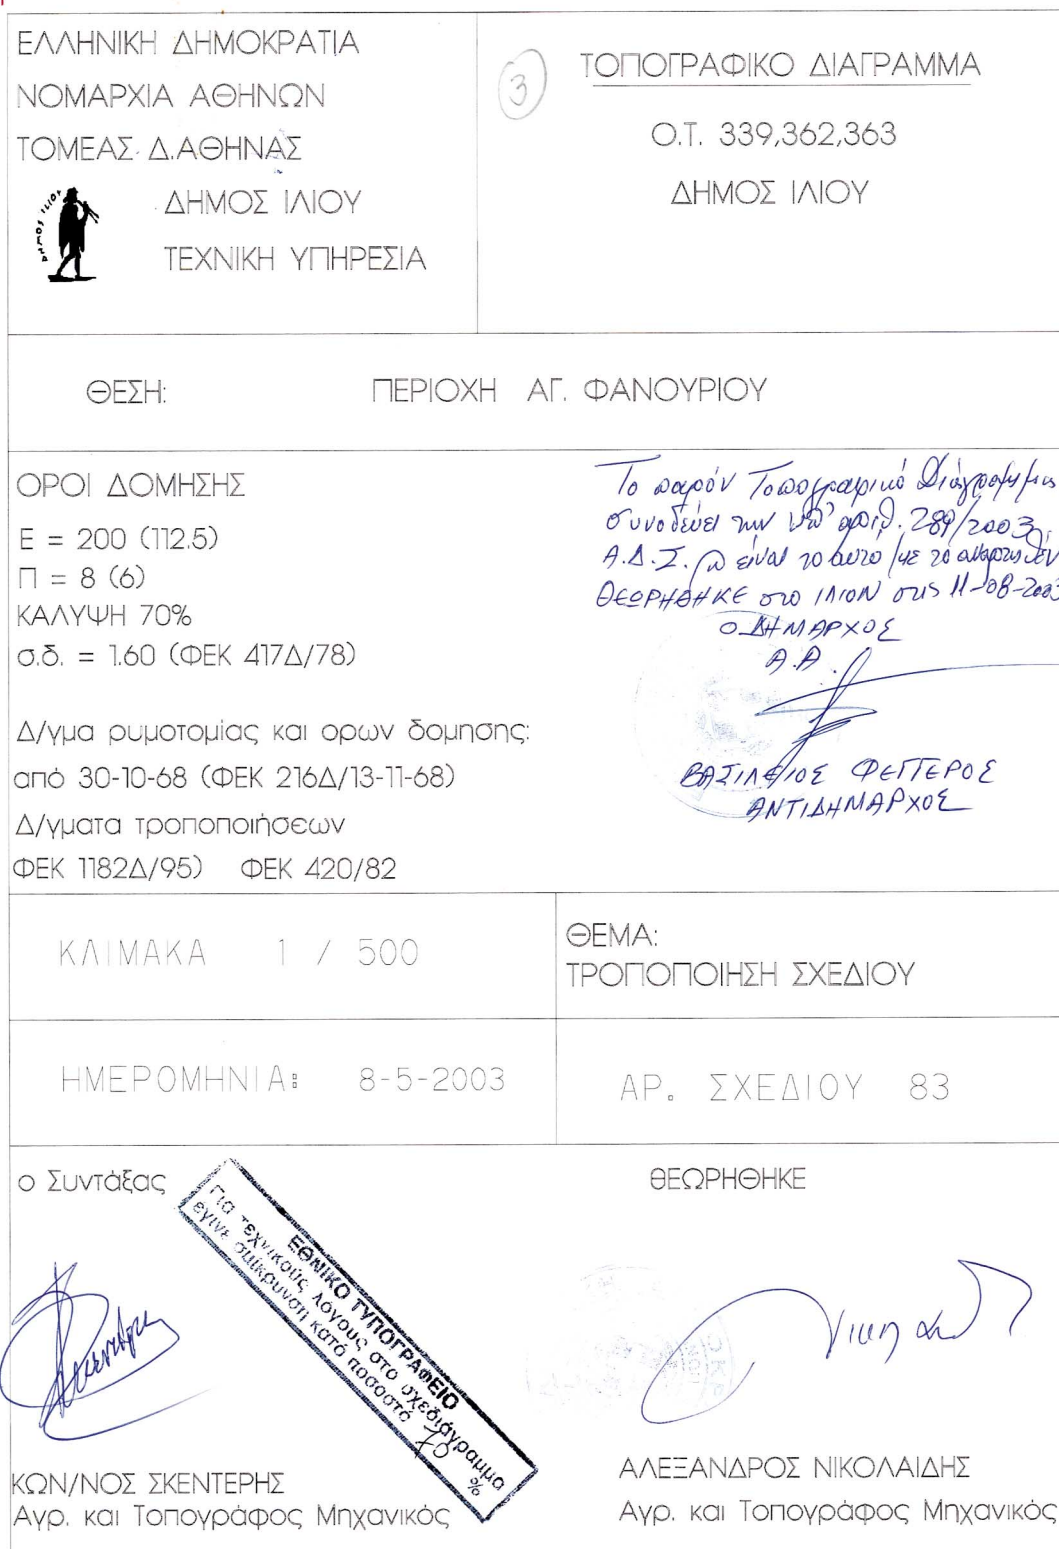 ΕΛΛΗΝΙΚΗ ΔΗΜΟΚΡΑΤΙΑ
ΝΟΜΑΡΧΙΑ ΑΘΗΝΩΝ
ΤΟΜΕΑΣ Δ.ΑΘΗΝΑΣ
ΔΗΜΟΣ ΙΛΙΟΥ
ΔΗΜΟΣ ΙΛΙΟΥ
ΤΕΧΝΙΚΗ ΥΠΗΡΕΣΙΑ
3
ΤΟΠΟΓΡΑΦΙΚΟ ΔΙΑΓΡΑΜΜΑ
Ο.Τ. 339,362,363
ΔΗΜΟΣ ΙΛΙΟΥ
ΘΕΣΗ: ΠΕΡΙΟΧΗ ΑΓ. ΦΑΝΟΥΡΙΟΥ
ΟΡΟΙ ΔΟΜΗΣΗΣ
Ε = 200 (112.5)
Π = 8 (6)
ΚΑΛΥΨΗ 70%
σ.δ. = 1.60 (ΦΕΚ 417Δ/78)
Δ/γμα ρυμοτομίας και ορων δομησης:
από 30-10-68 (ΦΕΚ 216Δ/13-11-68)
Δ/γματα τροποποιήσεων
ΦΕΚ 1182Δ/95) ΦΕΚ 420/82
Το παρόν Τοπογραφικό Διάγραμμα
συνοδεύει την υπ' αριθ. 289/2003
Α.Δ.Σ. είναι το αυτό με το αναρτηθέν
ΘΕΩΡΗΘΗΚΕ στο ΙΛΙΟΝ στις 11-08-2003
Ο ΔΗΜΑΡΧΟΣ
Α.Α.
ΒΑΣΙΛΕΙΟΣ ΦΕΓΓΕΡΟΣ
ΑΝΤΙΔΗΜΑΡΧΟΣ
ΚΛΙΜΑΚΑ 1 / 500
ΘΕΜΑ:
ΤΡΟΠΟΠΟΙΗΣΗ ΣΧΕΔΙΟΥ
ΗΜΕΡΟΜΗΝΙΑ: 8-5-2003
ΑΡ. ΣΧΕΔΙΟΥ 83
ο Συντάξας
ΕΘΝΙΚΟ ΤΥΠΟΓΡΑΦΕΙΟ
Για τεχνικούς λόγους στο σχεδιάγραμμα
έγινε σμίκρυνση κατά ποσοστό 70 %
ΚΩΝ/ΝΟΣ ΣΚΕΝΤΕΡΗΣ
Αγρ. και Τοπογράφος Μηχανικός
ΘΕΩΡΗΘΗΚΕ
ΑΛΕΞΑΝΔΡΟΣ ΝΙΚΟΛΑΙΔΗΣ
Αγρ. και Τοπογράφος Μηχανικός